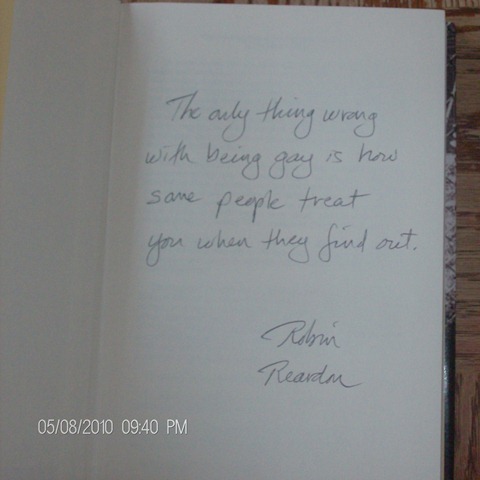 The only thing wrong
with being gay is how
some people treat
you when they find out.
Robin
Reardon
05/08/2010 09:40 PM